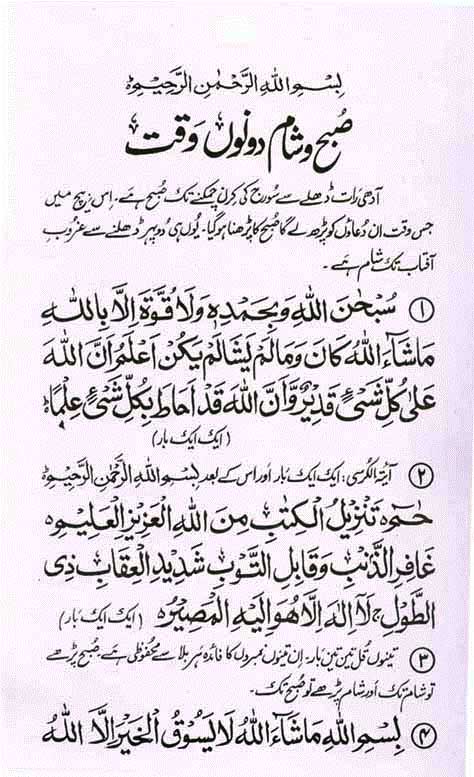 بِسْمِ اللهِ الرَّحْمٰنِ الرَّحِيْمِ ○
صُبح و شام دونوں وَقت
آدھی رَات ڈھلے سے سُورج کی کِرن چمکنے تک صُبح ہے۔ اِس بیچ میں
جس وقت اِن دُعاؤں کو پڑھ لے گا صُبح کا پڑھنا ہوگیا۔ یُوں ہی دُوپہر ڈھلنے سے غروبِ
آفتاب تک شام ہے۔
① سُبْحٰنَ اللهِ وَبِحَمْدِهٖ وَلَا قُوَّةَ اِلَّا بِاللهِ
مَاشَآءَ اللهُ كَانَ وَمَالَمْ يَشَالَمْ يَكُنْ اَعْلَمُ اَنَّ اللهَ
عَلٰى كُلِّ شَىْءٍ قَدِيْرٌ وَّاَنَّ اللهَ قَدْ اَحَاطَ بِكُلِّ شَىْءٍ عِلْمًا ○
(ایک ایک بار)
② آیۃ الکرسی: ایک ایک بَار اور اس کے بعد بِسْمِ اللهِ الرَّحْمٰنِ الرَّحِيْمِ ○
حٰمٓ ○ تَنْزِيْلُ الْكِتٰبِ مِنَ اللهِ الْعَزِيْزِ الْعَلِيْمِ ○
غَافِرِ الذَّنْۢبِ وَقَابِلِ التَّوْبِ شَدِيْدِ الْعِقَابِ ذِى
الطَّوْلِ ؕ لَآ اِلٰهَ اِلَّا هُوَ اِلَيْهِ الْمَصِيْرُ ○ (ایک ایک بَار)
③ تینوں قُل تین تین بَار۔ اِن تینوں نمبروں کا فائدہ ہر بلا سے محفوظی ہے۔ صُبح پڑھے
تو شام تک اور شام پڑھے تو صُبح تک۔
④ بِسْمِ اللهِ مَاشَآءَ اللهُ لَا يَسُوْقُ الْخَيْرَ اِلَّا اللهُ